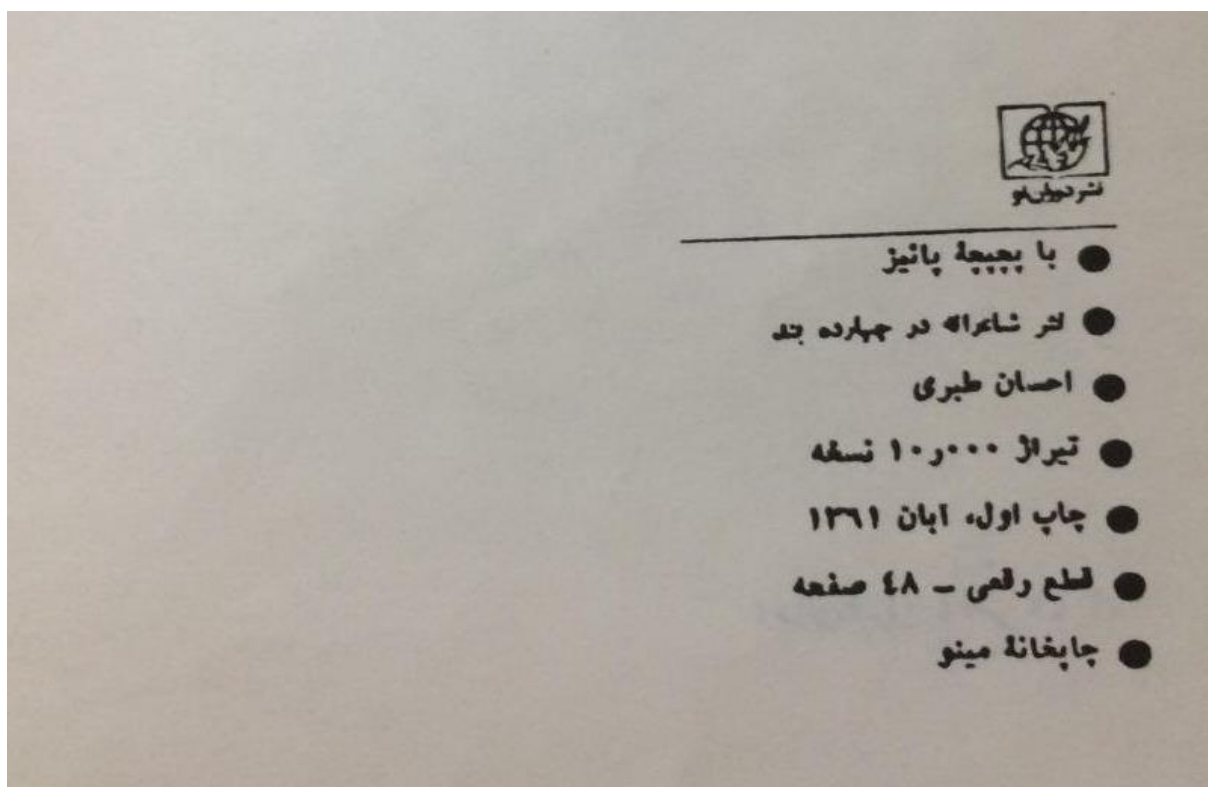 نشر دوران نو
با پچپچهٔ پائیز
نثر شاعرانه در چهارده بند
احسان طبری
تیراژ ۱۰٫۰۰۰ نسخه
چاپ اول، آبان ۱۳۶۱
قطع رقعی – ۴۸ صفحه
چاپخانهٔ مینو